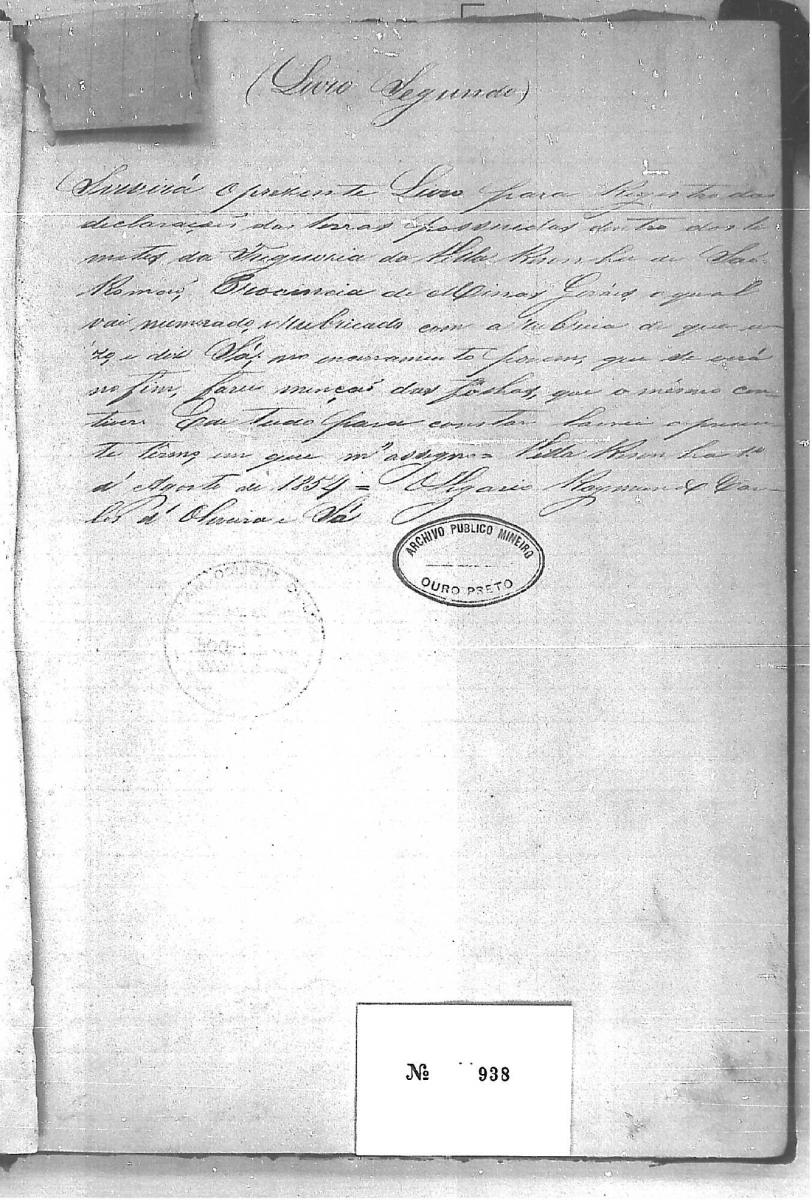 (Livro Segundo)
Servirá o presente Livro para Registro das
declaraçoẽs das terras possuidas dentro dos li
mites da Freguesia da Villa Risonha de Saõ
Romaõ, Provincia de Minas Geraes, o qual
vai numerado, e rubricado com a rubrica de que u-
zo, e diz Sá; no encerramento porem, que se verá
no fim, farei mençaõ das folhas, que o mesmo con-
tiver. E de tudo para constar lavrei o presen-
te termo, em que me assigno = Villa Risonha 1º
d'Agosto de 1854 = O Vigario Raymundo Car-
los d'Oliveira e Sá
ARCHIVO PUBLICO MINEIRO
OURO PRETO
Nº 938